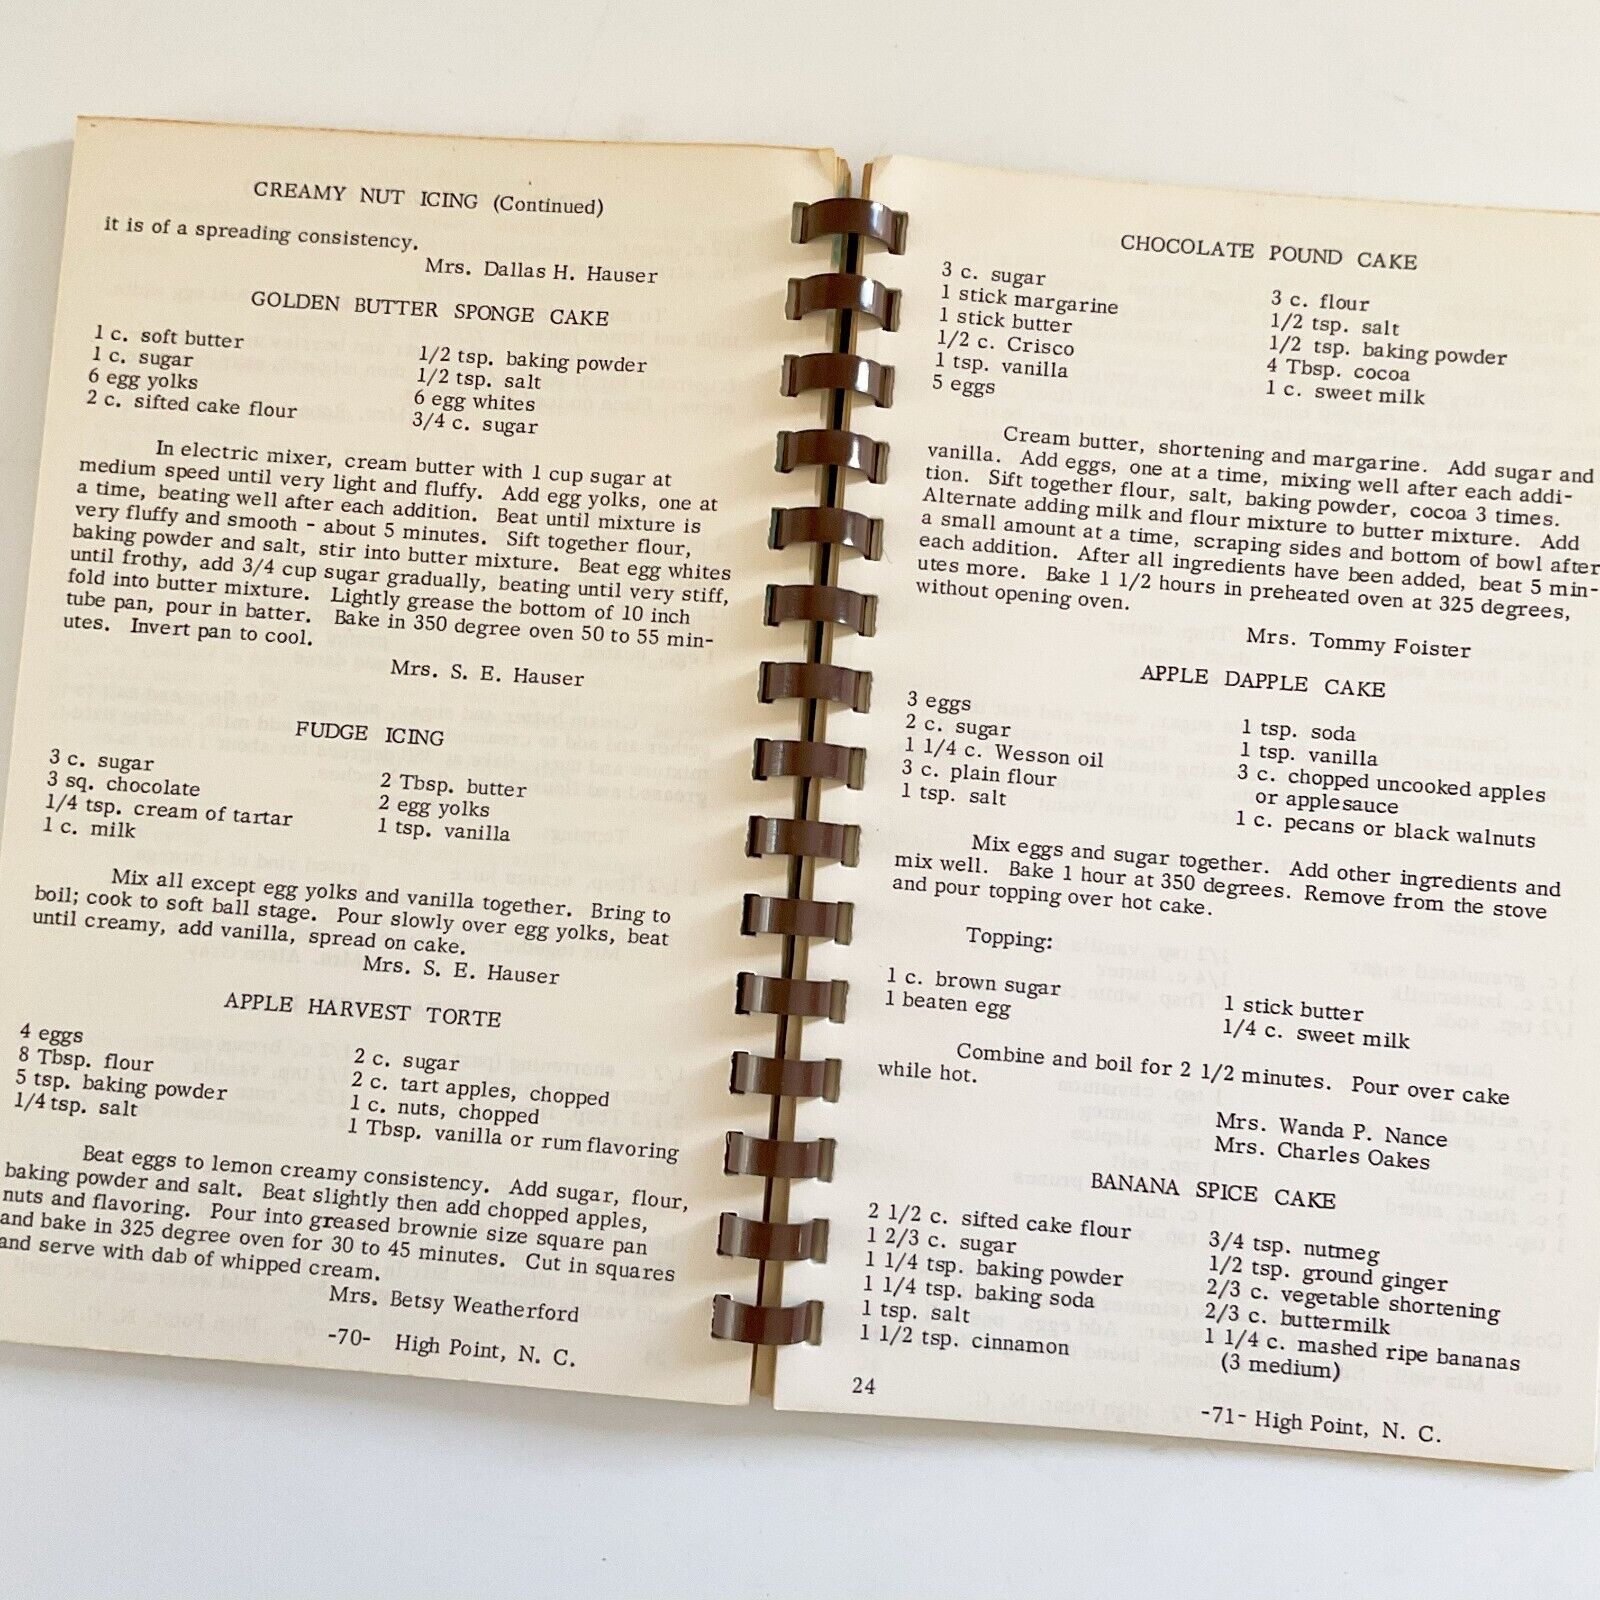 CREAMY NUT ICING (Continued)
it is of a spreading consistency.
Mrs. Dallas H. Hauser
GOLDEN BUTTER SPONGE CAKE
1 c. soft butter
1 c. sugar
6 egg yolks
2 c. sifted cake flour
1/2 tsp. baking powder
1/2 tsp. salt
6 egg whites
3/4 c. sugar
In electric mixer, cream butter with 1 cup sugar at
medium speed until very light and fluffy. Add egg yolks, one at
a time, beating well after each addition. Beat until mixture is
very fluffy and smooth - about 5 minutes. Sift together flour,
baking powder and salt, stir into butter mixture. Beat egg whites
until frothy, add 3/4 cup sugar gradually, beating until very stiff,
fold into butter mixture. Lightly grease the bottom of 10 inch
tube pan, pour in batter. Bake in 350 degree oven 50 to 55 min-
utes. Invert pan to cool.
Mrs. S. E. Hauser
FUDGE ICING
3 c. sugar
3 sq. chocolate
1/4 tsp. cream of tartar
1 c. milk
2 Tbsp. butter
2 egg yolks
1 tsp. vanilla
Mix all except egg yolks and vanilla together. Bring to
boil; cook to soft ball stage. Pour slowly over egg yolks, beat
until creamy, add vanilla, spread on cake.
Mrs. S. E. Hauser
APPLE HARVEST TORTE
4 eggs
8 Tbsp. flour
5 tsp. baking powder
1/4 tsp. salt
2 c. sugar
2 c. tart apples, chopped
1 c. nuts, chopped
1 Tbsp. vanilla or rum flavoring
Beat eggs to lemon creamy consistency. Add sugar, flour,
baking powder and salt. Beat slightly then add chopped apples,
nuts and flavoring. Pour into greased brownie size square pan
and bake in 325 degree oven for 30 to 45 minutes. Cut in squares
and serve with dab of whipped cream.
Mrs. Betsy Weatherford
-70- High Point, N. C.
CHOCOLATE POUND CAKE
3 c. sugar
1 stick margarine
1 stick butter
1/2 c. Crisco
1 tsp. vanilla
5 eggs
3 c. flour
1/2 tsp. salt
1/2 tsp. baking powder
4 Tbsp. cocoa
1 c. sweet milk
Cream butter, shortening and margarine. Add sugar and
vanilla. Add eggs, one at a time, mixing well after each addi-
tion. Sift together flour, salt, baking powder, cocoa 3 times.
Alternate adding milk and flour mixture to butter mixture. Add
a small amount at a time, scraping sides and bottom of bowl after
each addition. After all ingredients have been added, beat 5 min-
utes more. Bake 1 1/2 hours in preheated oven at 325 degrees,
without opening oven.
Mrs. Tommy Foister
APPLE DAPPLE CAKE
3 eggs
2 c. sugar
1 1/4 c. Wesson oil
3 c. plain flour
1 tsp. salt
1 tsp. soda
1 tsp. vanilla
3 c. chopped uncooked apples
or applesauce
1 c. pecans or black walnuts
Mix eggs and sugar together. Add other ingredients and
mix well. Bake 1 hour at 350 degrees. Remove from the stove
and pour topping over hot cake.
Topping:
1 c. brown sugar
1 beaten egg
1 stick butter
1/4 c. sweet milk
Combine and boil for 2 1/2 minutes. Pour over cake
while hot.
Mrs. Wanda P. Nance
Mrs. Charles Oakes
BANANA SPICE CAKE
2 1/2 c. sifted cake flour
1 2/3 c. sugar
1 1/4 tsp. baking powder
1 1/4 tsp. baking soda
1 tsp. salt
1 1/2 tsp. cinnamon
3/4 tsp. nutmeg
1/2 tsp. ground ginger
2/3 c. vegetable shortening
2/3 c. buttermilk
1 1/4 c. mashed ripe bananas
(3 medium)
24
-71- High Point, N. C.